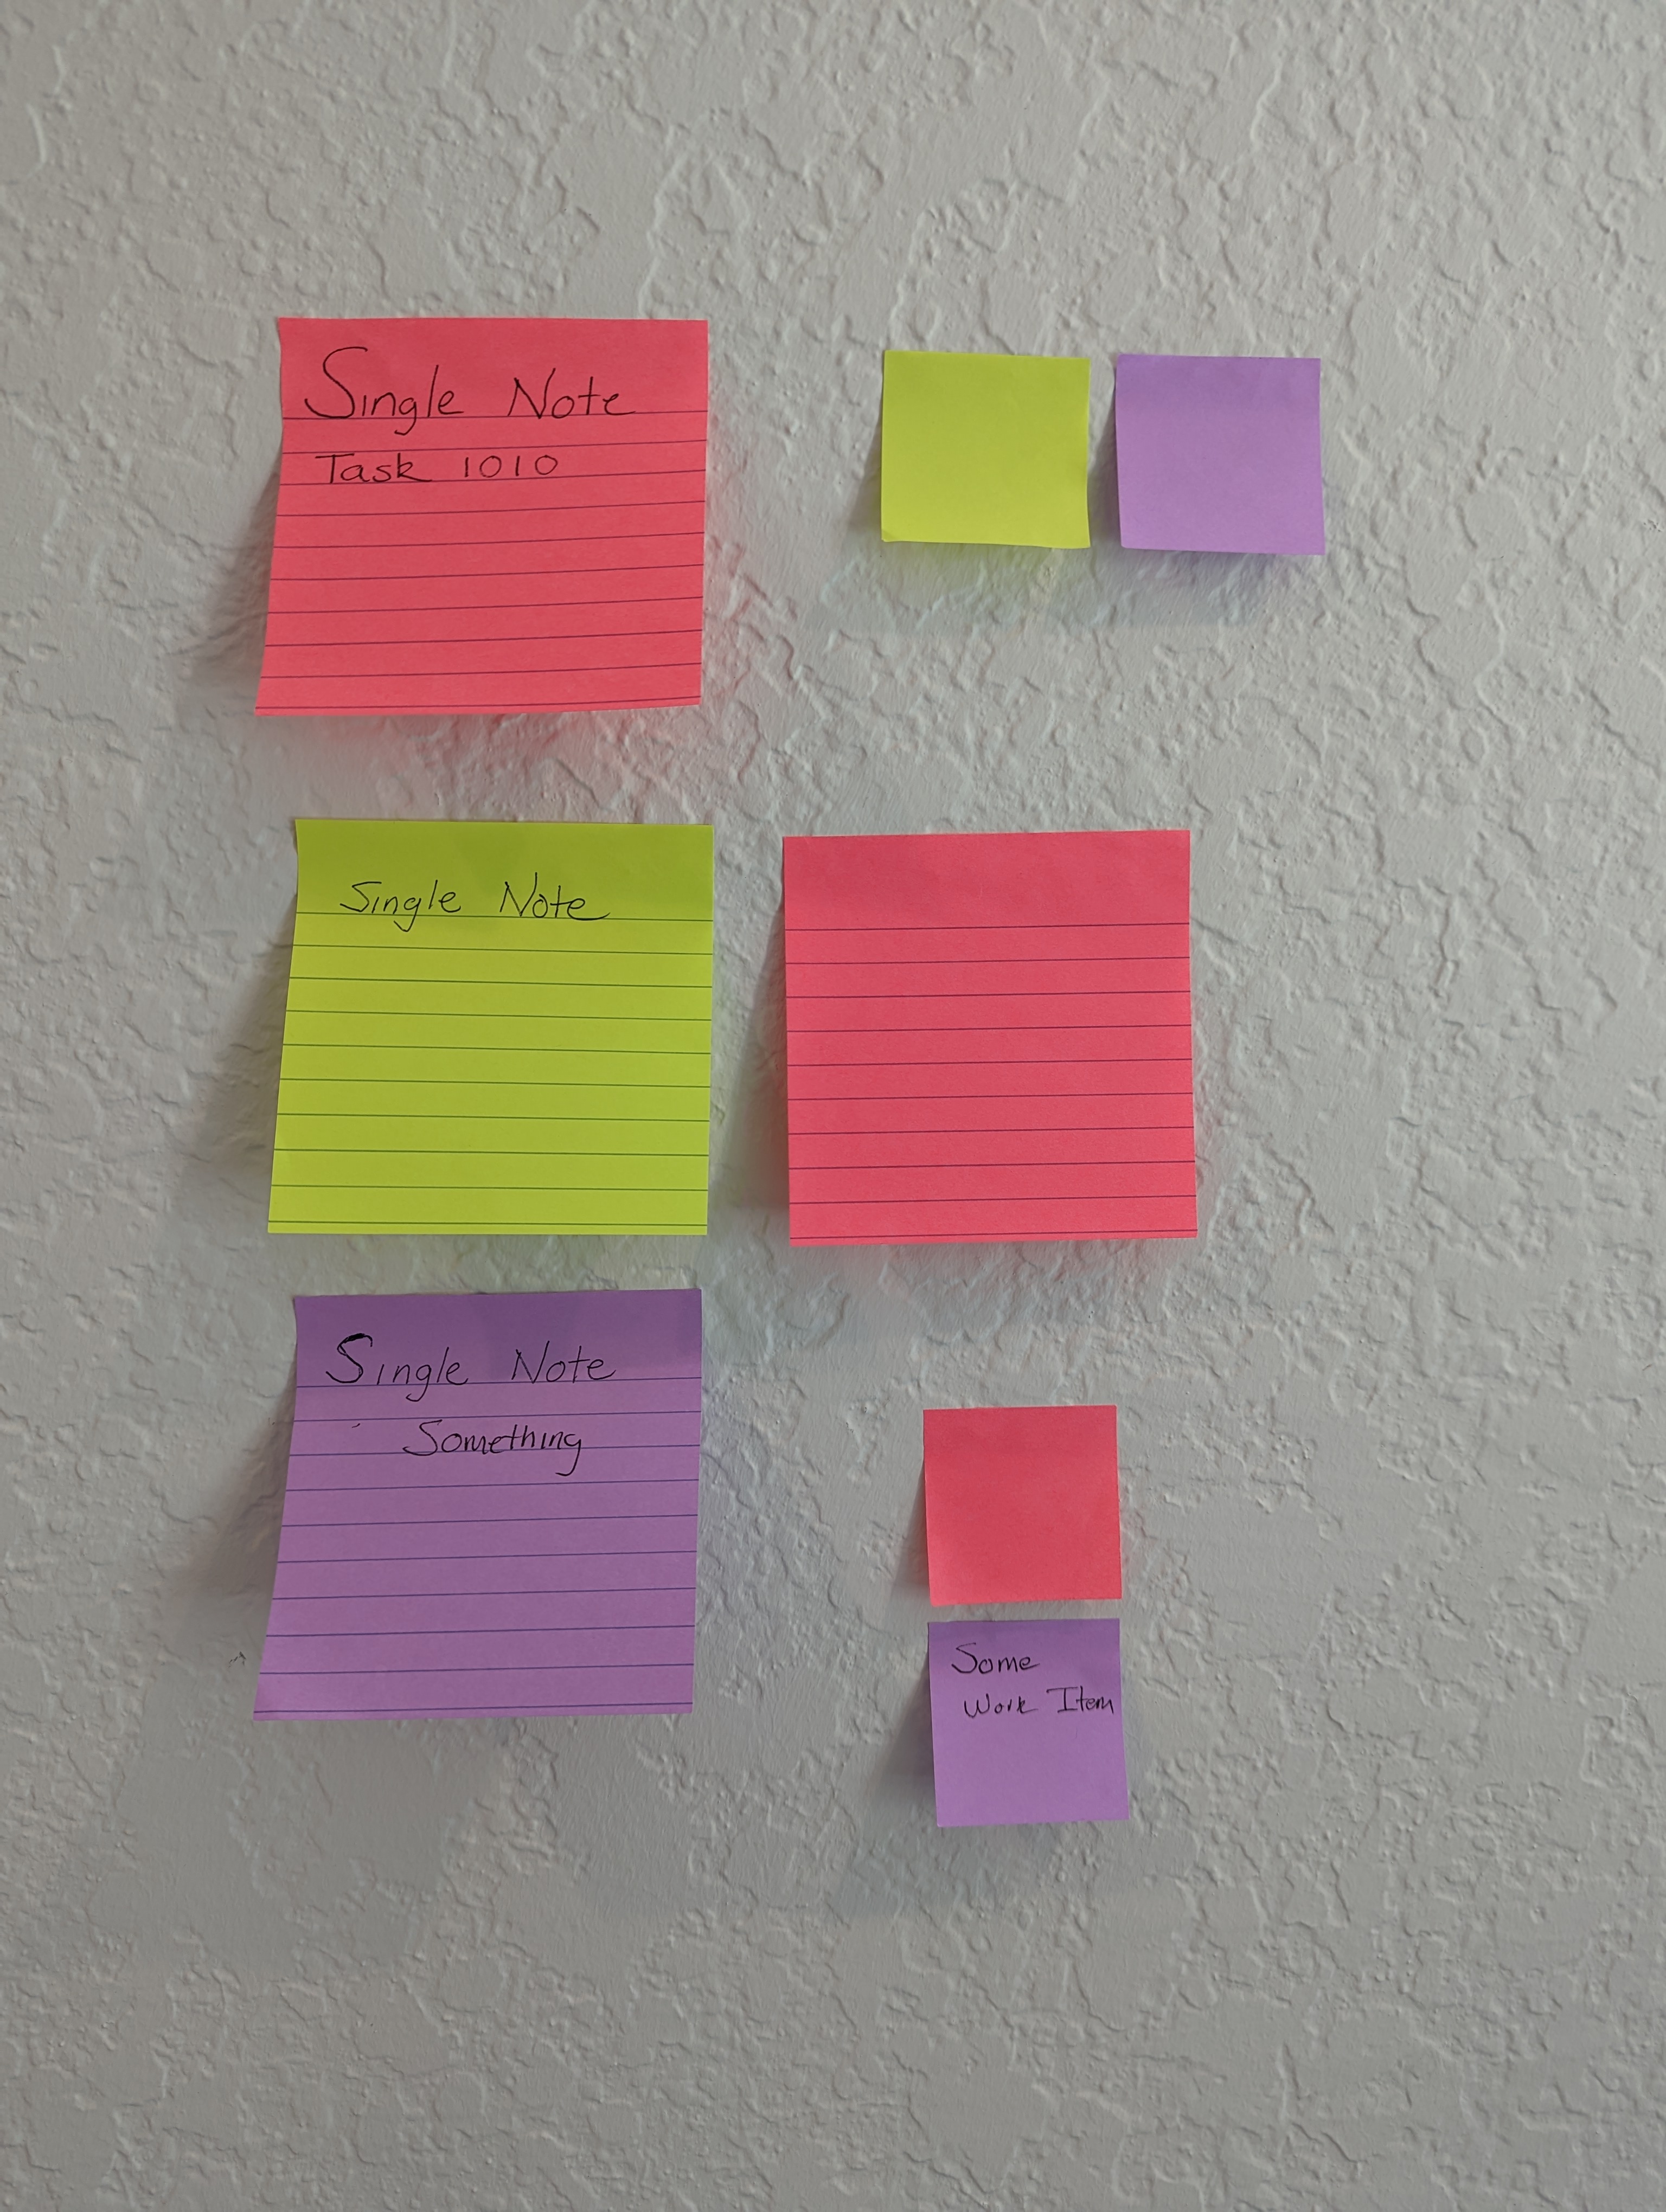 Single Note
Task 1010
Single Note
Single Note
Something
Some
Work Item